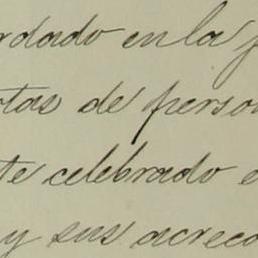 rdado en la
otas de perso
te celebrado e
y sus acreed